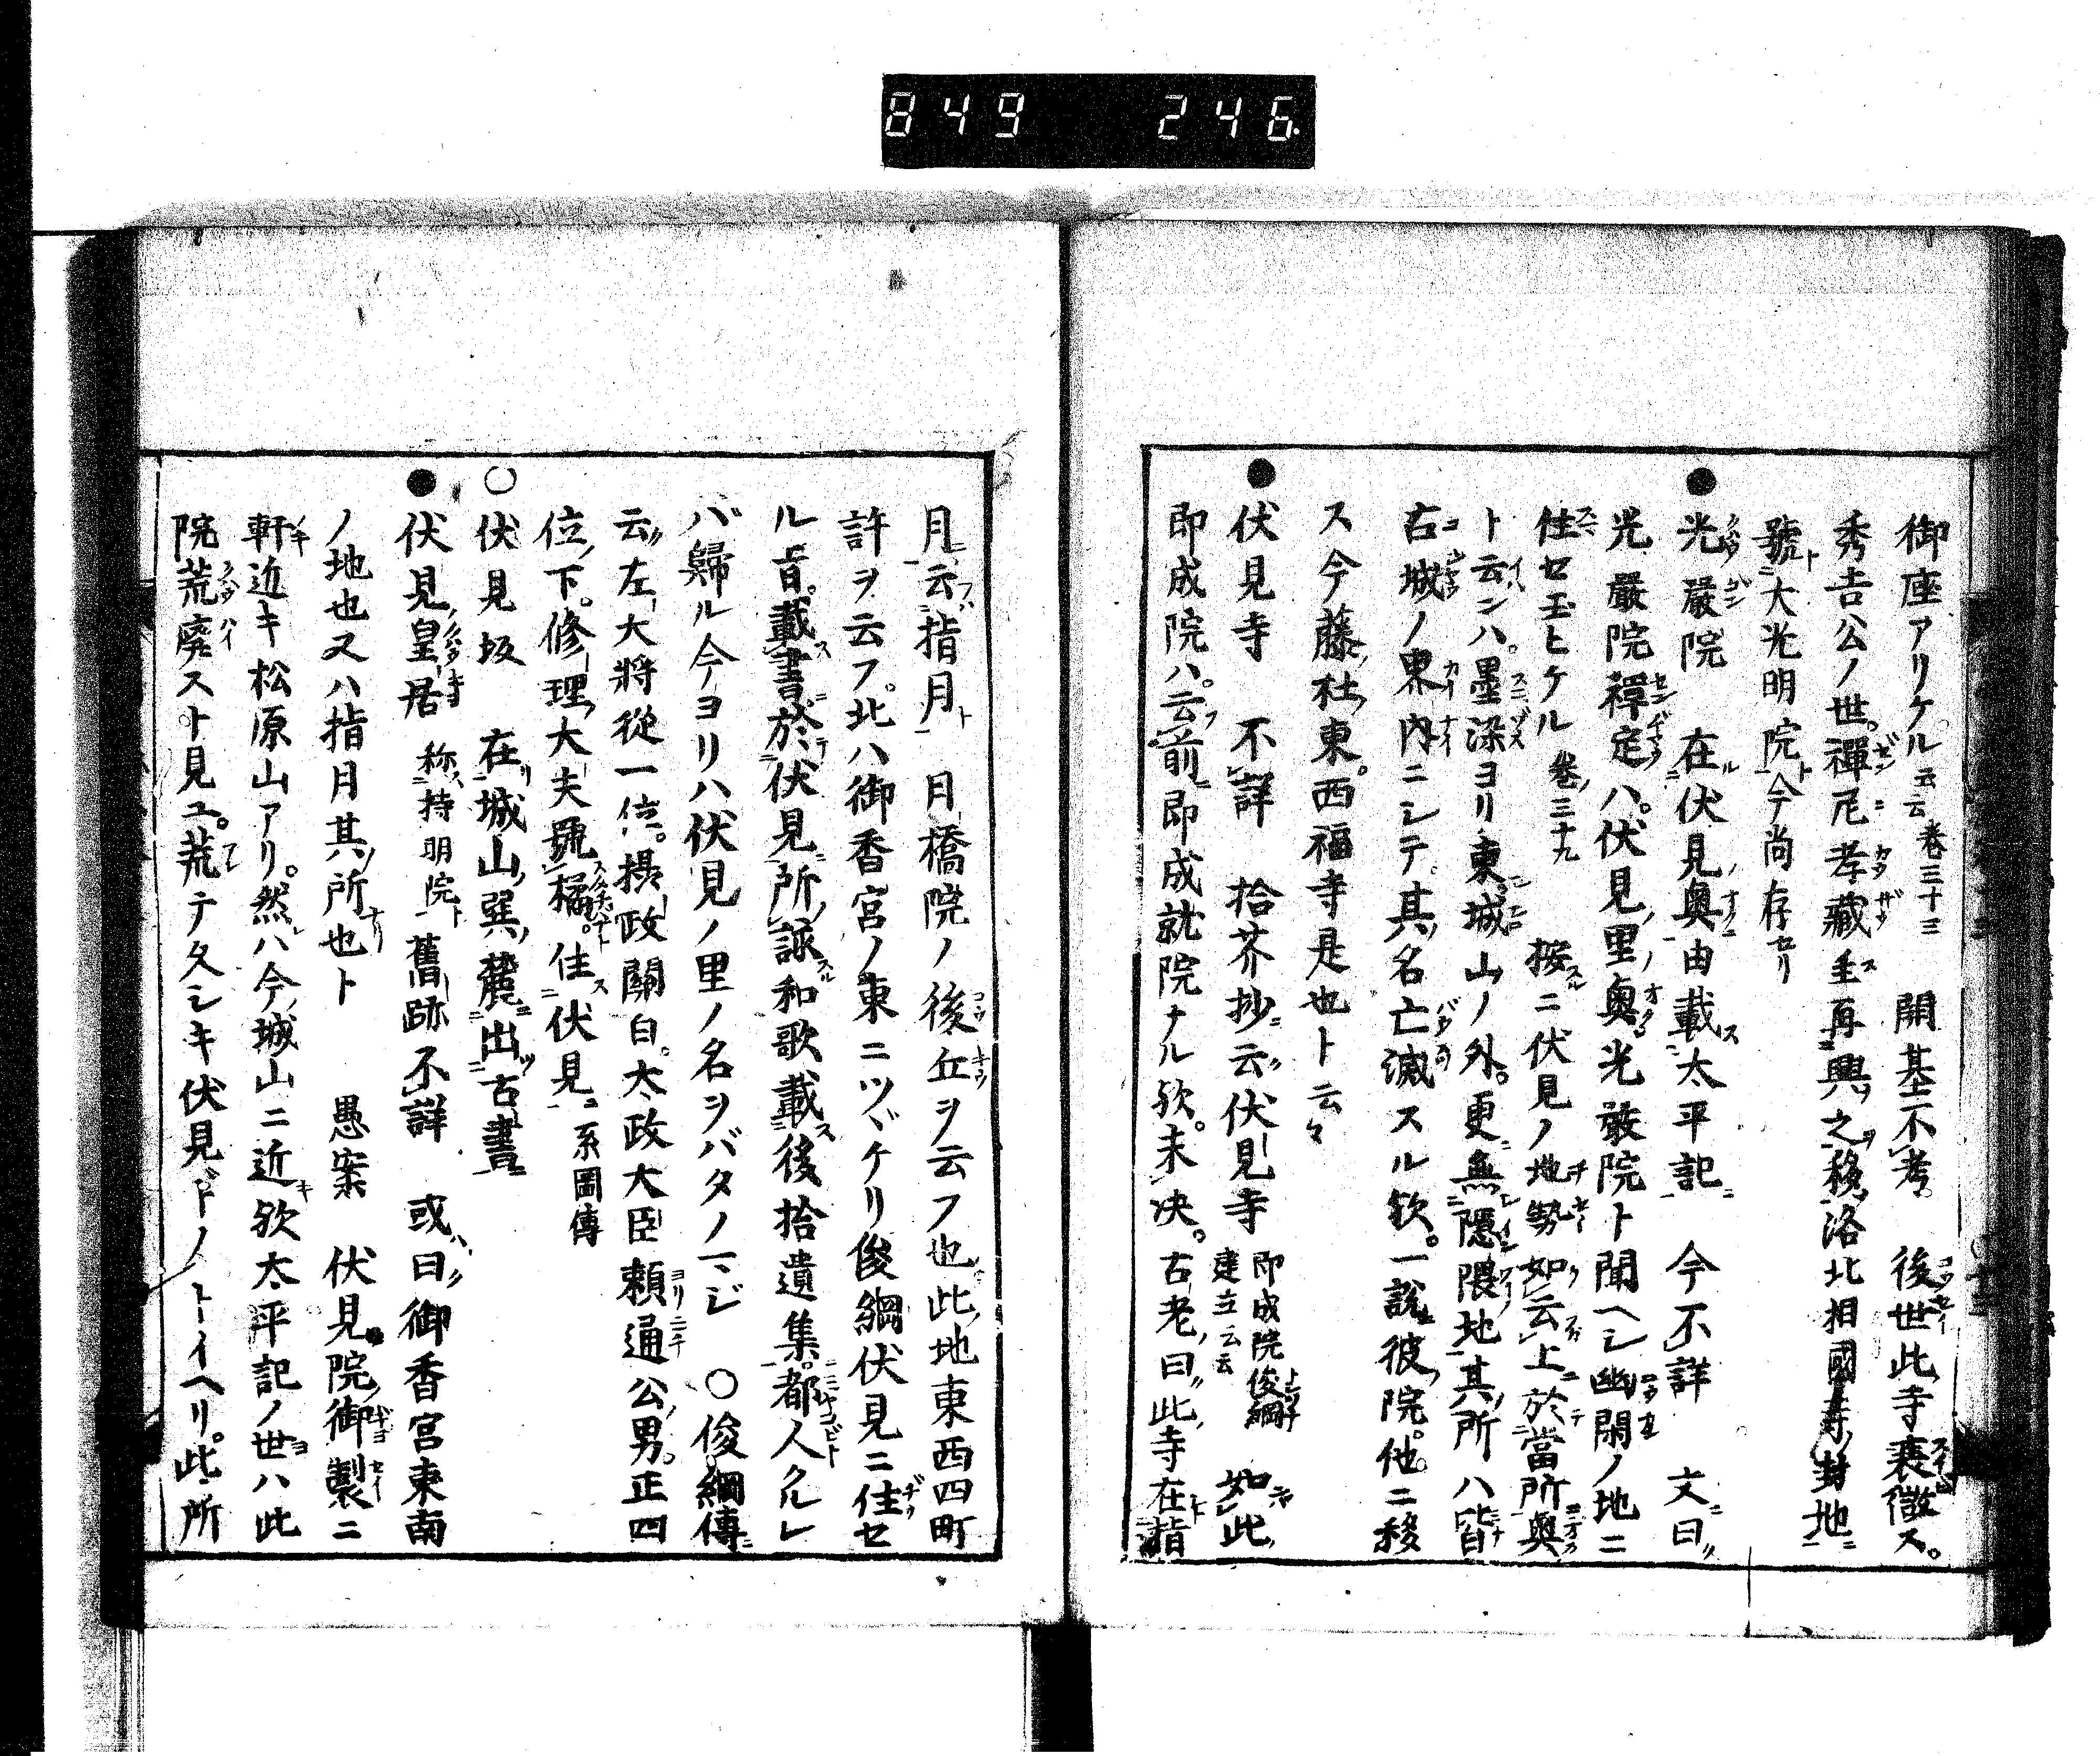 849 246
御座アリケル云云 巻三十三 開基不考 後世此寺衰微ス。
秀吉公ノ世。禪尼孝藏主再興之移洛北相國寺封地
號大光明院今尚存セリ
●光嚴院 在伏見奥由載太平記 今不詳 文曰
光嚴院禪定ハ。伏見里奥光嚴院ト聞ヘシ幽閑ノ地ニ
住セ玉ヒケル 巻三十九 按ニ伏見ノ地勢如云上於當所奥
ト云ンハ。墨染ヨリ東城山ノ外。更無隱隈地其所ハ皆
古城ノ界内ニシテ。其名亡滅スル欤。一説彼院。他ニ移
ス今藤杜東。西福寺是也ト云々
●伏見寺 不詳 拾芥抄云伏見寺 即成院俊綱建立云云 如此
即成院ハ。云前即成就院ナル欤。未决。古老曰此寺在指
月云指月 月橋院ノ後丘ヲ云フ也此地東西四町
許ヲ云フ。北ハ御香宮ノ東ニツヾケリ俊綱伏見ニ住セ
ル旨。載書於伏見所詠和歌載後拾遺集。都人クルレ
バ歸ル今ヨリハ伏見ノ里ノ名ヲバタノマジ ○俊綱傳
云左大將從一位。攝政關白。太政大臣頼通公男。正四
位下。修理大夫號橘。住伏見 系圖傳
○伏見坂 在城山巽麓出古書
●伏見皇居 称持明院 舊跡不詳 或曰御香宮東南
ノ地也又ハ指月其所也ト 愚案 伏見院御製ニ
軒近キ松原山アリ。然ハ今城山ニ近欤太平記ノ世ハ此
院荒廃スト見ユ。荒テ久シキ伏見ドノトイヘリ。此所